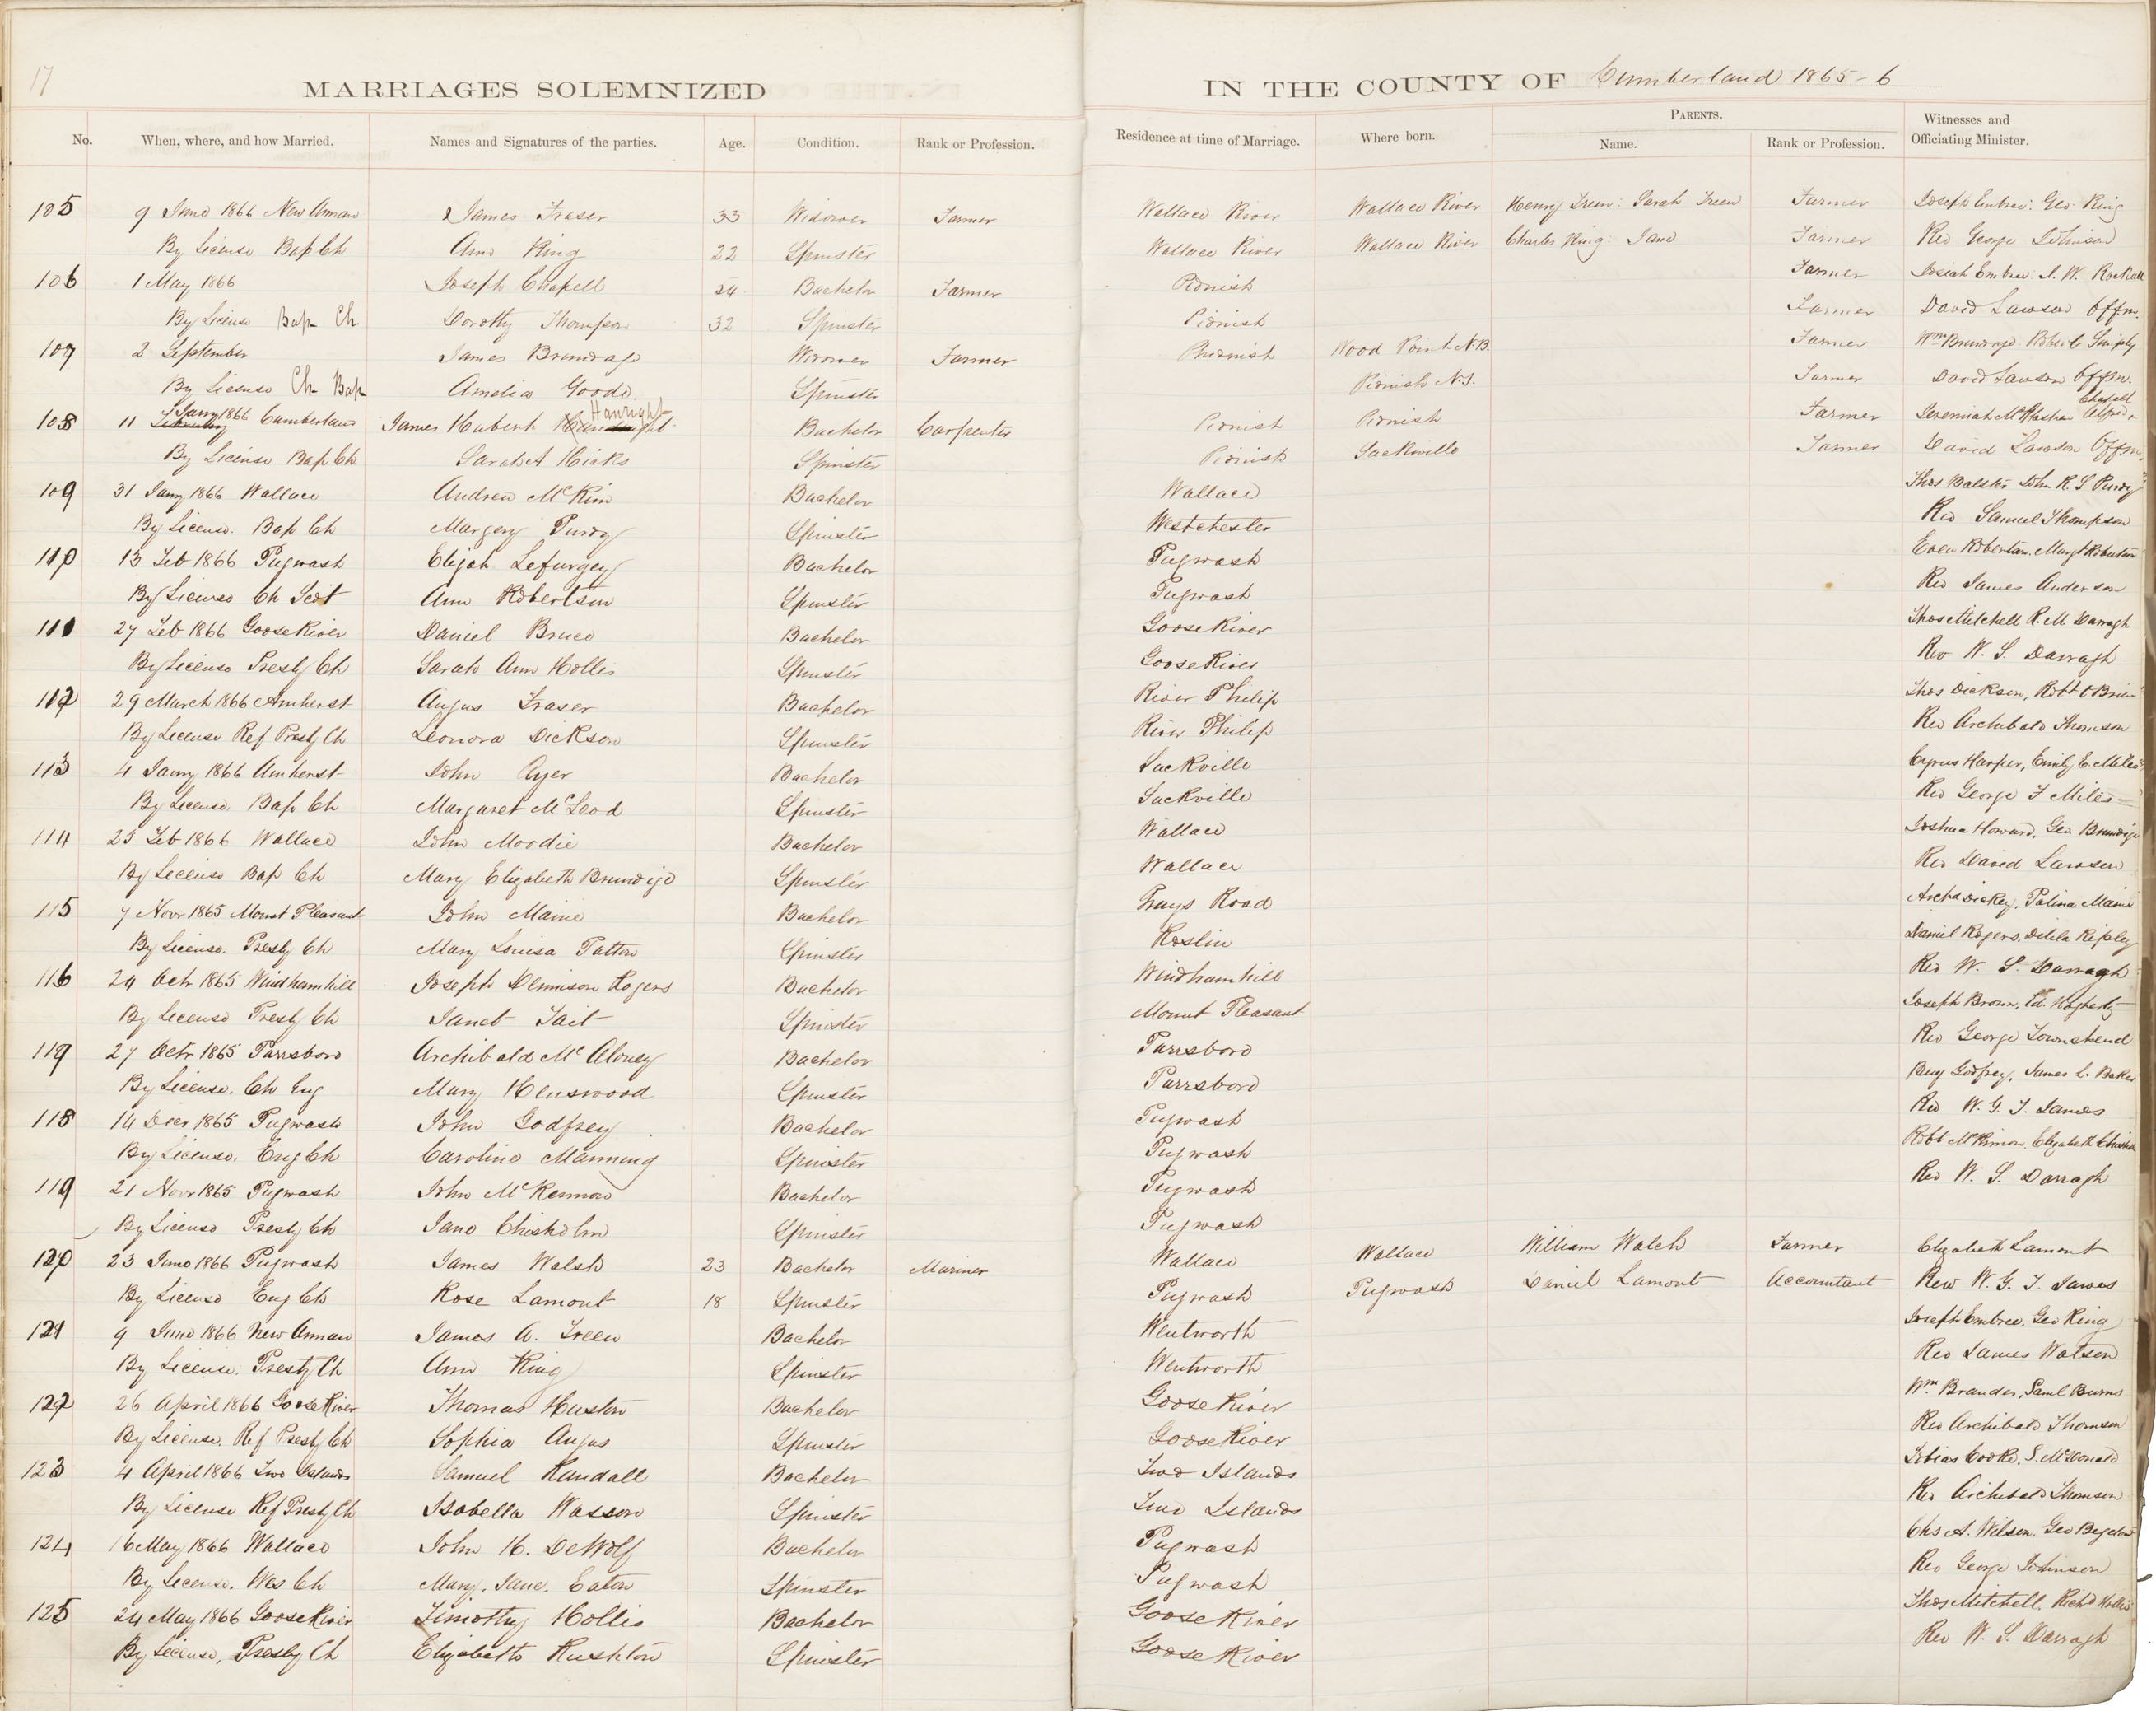 17
MARRIAGES SOLEMNIZED IN THE COUNTY OF Cumberland 1865-6
No. When, where, and how Married. Names and Signatures of the parties. Age. Condition. Rank or Profession. Residence at time of Marriage. Where born. PARENTS. Name. Rank or Profession. Witnesses and Officiating Minister.
105 9 June 1866 New Annan James Fraser 33 Widower Farmer Wallace River Wallace River Henry Treen: Sarah Treen Farmer Joseph Embree: Geo King
By License Bap Ch Ann King 22 Spinster Wallace River Wallace River Charles King: Jane Farmer Rev George Johnson
106 1 May 1866 Joseph Chapell 24 Bachelor Farmer Pidnish Farmer Josiah Embree J. W. Rockwell
By License Bap Ch Dorothy Thompson 32 Spinster Pidnish Farmer David Lawson Offm.
107 2 September James Brundage Widower Farmer Phidnish Wood Point N.B. Farmer Wm Brundage Robert
By License Ch Bap Amelia Goode Spinster Pidnish N.S. Farmer David Lawson Offm.
108 11 Jany 1866 Cumberland James Hubert Hanright Bachelor Carpenter Pidnish Pidnish Farmer Jeremiah Alfred Chapell
By License Bap Ch Sarah A Hicks Spinster Pidnish Sackville Farmer David Lawson Offm.
109 31 Jany 1866 Wallace Andrew McKim Bachelor Wallace Thos John R. S Purdy
By License. Bap Ch Margery Purdy Spinster Westchester Rev Samuel Thompson
110 13 Feb 1866 Pugwash Elijah Lefurgey Bachelor Pugwash Robertson. Margt Robertson
By License Ch Scot Ann Robertson Spinster Pugwash Rev James Anderson
111 27 Feb 1866 Goose River Daniel Bruce Bachelor Goose River Thos Mitchell R. M Darragh
By License Presby Ch Sarah Ann Hollis Spinster Goose River Rev W. S. Darragh
112 29 March 1866 Amherst Angus Fraser Bachelor River Philip Thos Dickson, Robt O'Brien
By License Ref Presby Ch Leonora Dickson Spinster River Philip Rev Archibald Thomson
113 4 Jany 1866 Amherst John Ayer Bachelor Sackville Cyrus Harper, Emily E. Miles
By License. Bap Ch Margaret McLeod Spinster Sackville Rev George F Miles
114 25 Feb 1866 Wallace John Moodie Bachelor Wallace Joshua Howard, Geo Brundige
By License Bap Ch Mary Elizabeth Brundige Spinster Wallace Rev David Lawson
115 7 Novr 1865 Mount Pleasant John Maine Bachelor Grays Road Archd Dickey, Palina Maine
By License. Presby Ch Mary Louisa Patton Spinster Roslin Daniel Rogers, Delila Ripley
116 24 Octr 1865 Windham hill Joseph Dennison Rogers Bachelor Windham hill Rev W. S. Darragh
By License Presby Ch Janet Tait Spinster Mount Pleasant Joseph Brown, Ed.
117 27 Octr 1865 Parrsboro Archibald McAloney Bachelor Parrsboro Rev George Townshend
By License. Ch Eng Mary Henswood Spinster Parrsboro Benj Godfrey, James L. Baker
118 14 Decr 1865 Pugwash John Godfrey Bachelor Pugwash Rev W. G. T. James
By License, Eng Ch Caroline Manning Spinster Pugwash Robt McKinnon, Elizabeth Chisholm
119 21 Novr 1865 Pugwash John McKennon Bachelor Pugwash Rev W. S. Darragh
By License Presby Ch Jane Chisholm Spinster Pugwash
120 23 June 1866 Pugwash James Walsh 23 Bachelor Mariner Wallace Wallace William Walch Farmer Elizabeth Lamont
By License Eng Ch Rose Lamont 18 Spinster Pugwash Pugwash Daniel Lamont Accountant Rev W. G. T. James
121 9 June 1866 New Annan James A. Treen Bachelor Wentworth Joseph Embree, Geo King
By License. Presby Ch Ann King Spinster Wentworth Rev James Watson
122 26 April 1866 Goose River Thomas Huston Bachelor Goose River Wm Brander, Saml Burns
By License. Ref Presby Ch Sophia Angus Spinster Goose River Rev Archibald Thomson
123 4 April 1866 Two Islands Samuel Randall Bachelor Two Islands Tobias Cooke, S. McDonald
By License Ref Presby Ch Isabella Wasson Spinster Two Islands Rev Archibald Thomson
124 16 May 1866 Wallace John H. DeWolf Bachelor Pugwash Chs A. Wilson. Geo Bigelow
By License. Wes Ch Mary. Jane. Eaton Spinster Pugwash Rev George Johnson
125 24 May 1866 Goose River Timothy Hollis Bachelor Goose River Thos Mitchell. Richd Hollis
By License, Presby Ch Elizabeth Rushton Spinster Goose River Rev W. S. Darragh